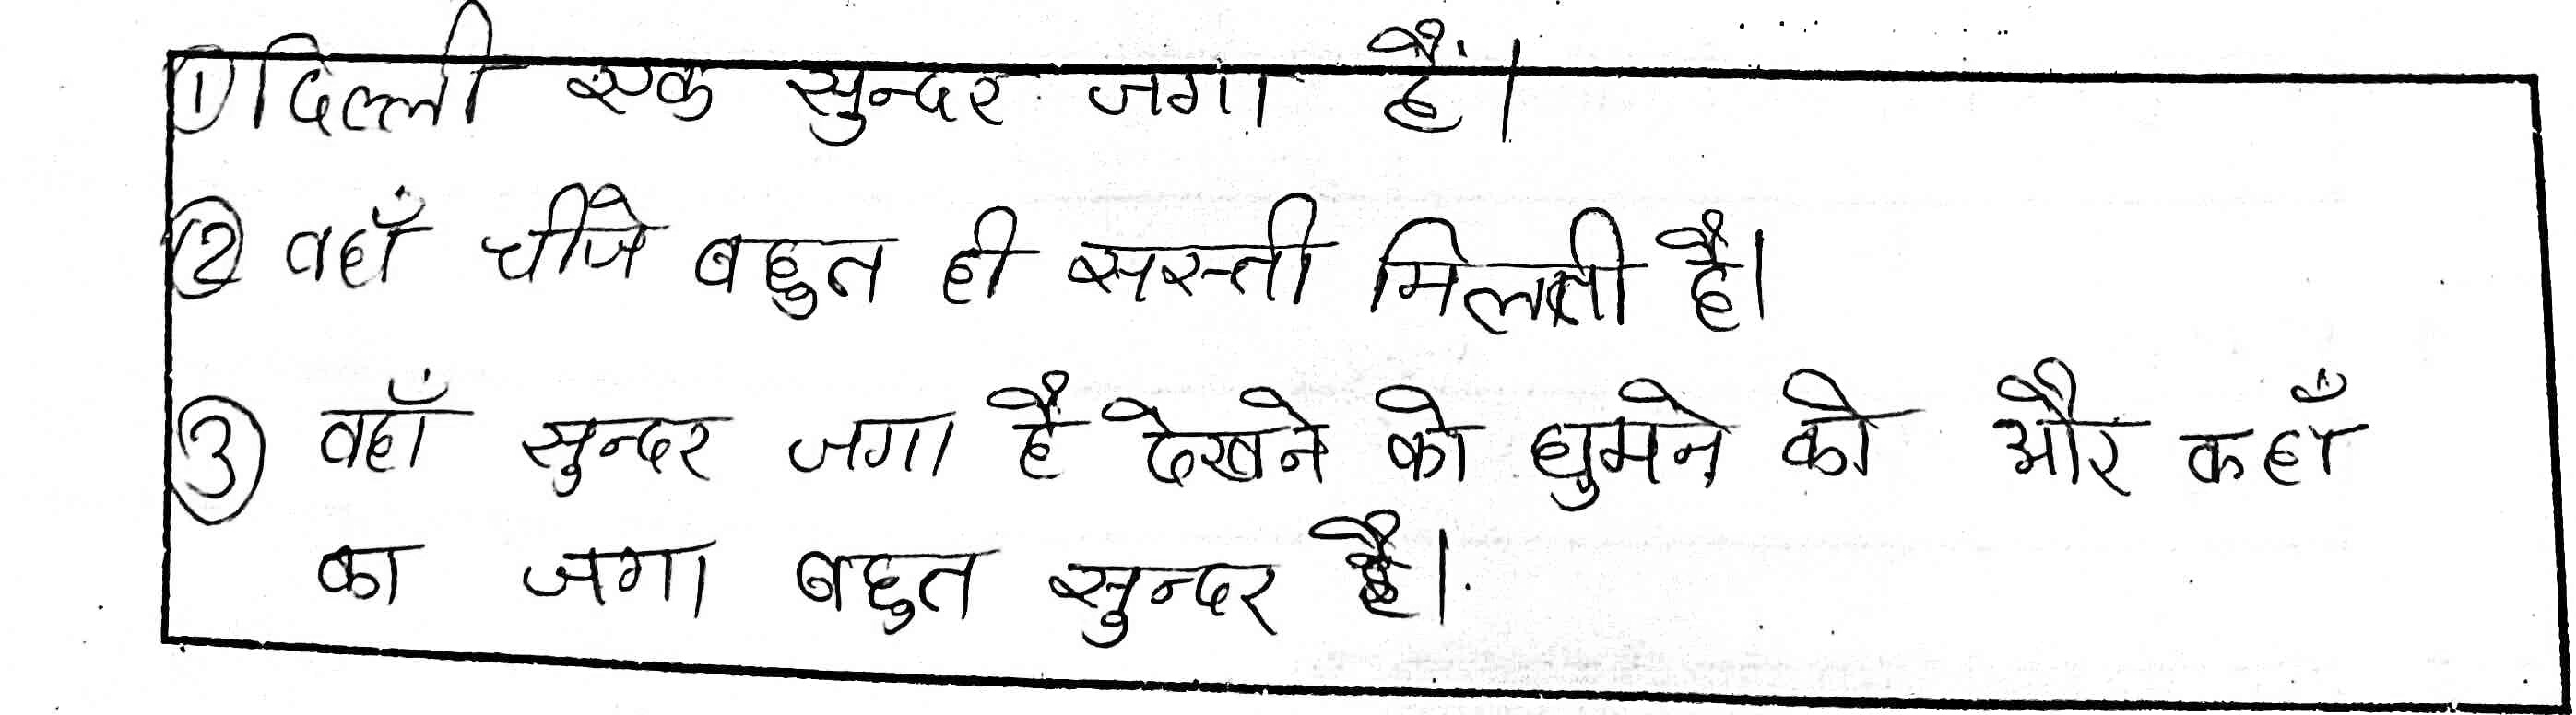 ① दिल्ली एक सुन्दर जगा हैं।
② वहाँ चीजे बहुत ही सस्ती मिलती है।
③ वहाँ सुन्दर जगा है देखने को घुमने को और कहाँ
का जगा बहुत सुन्दर है।